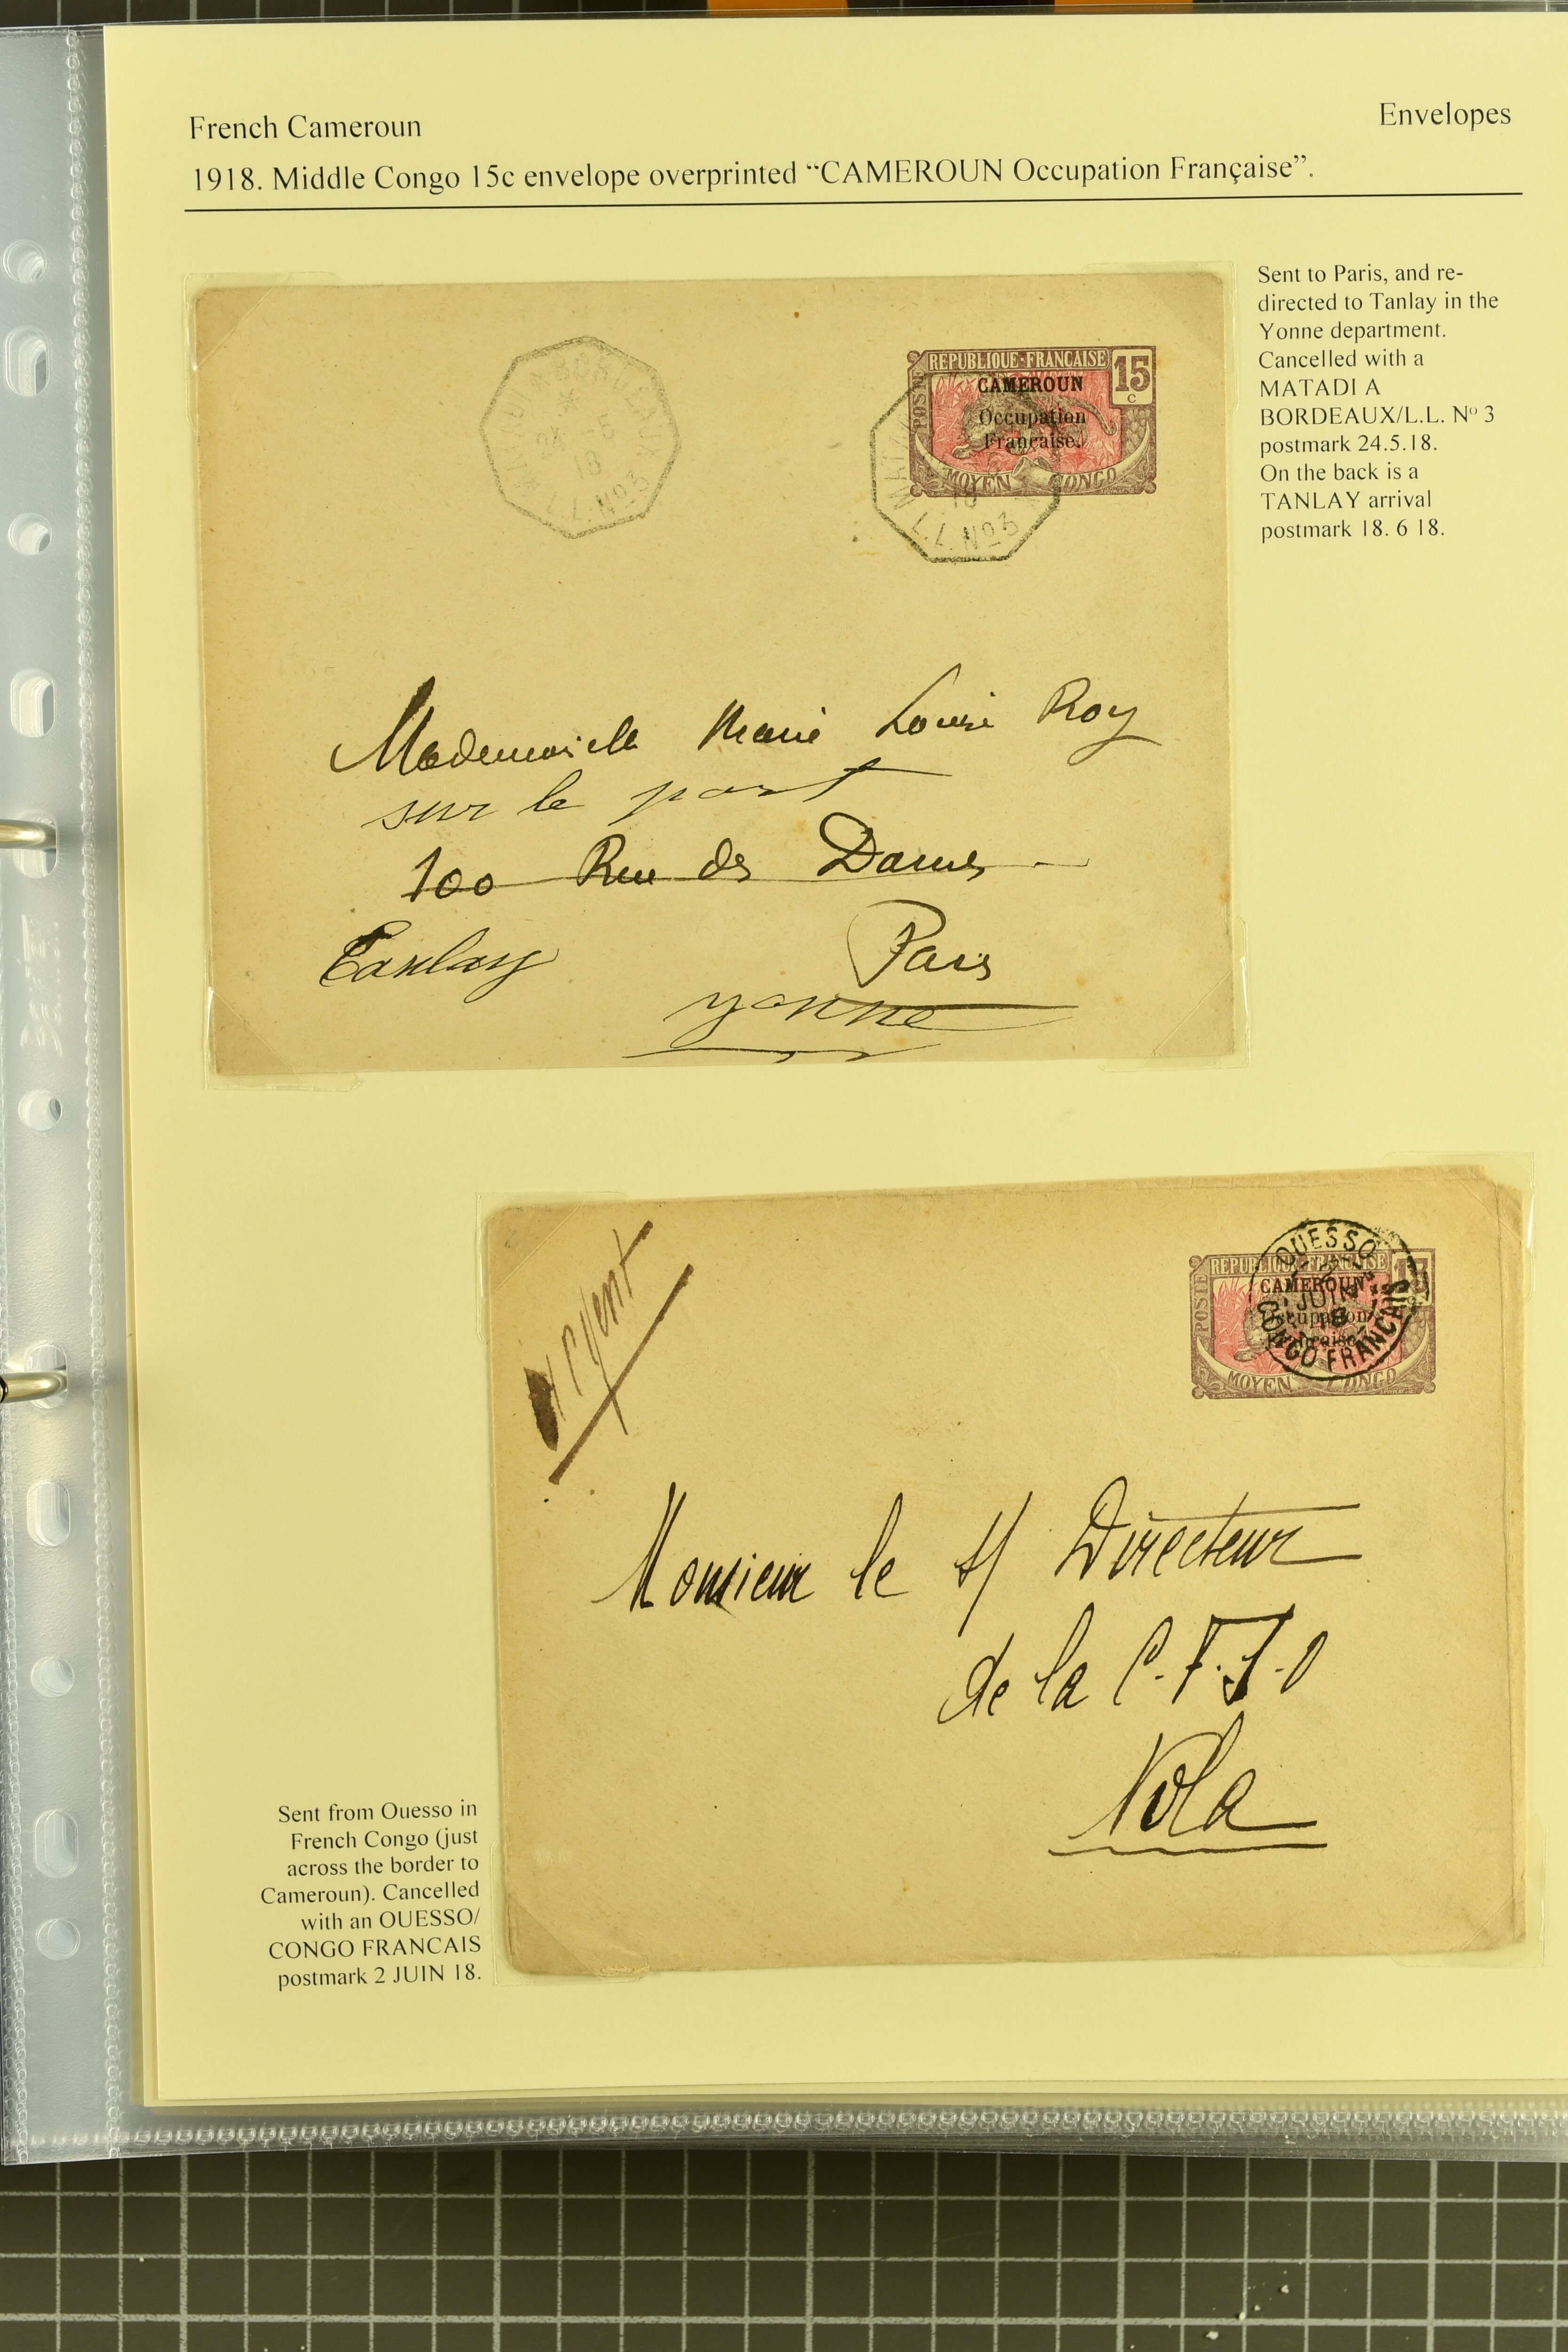 French Cameroun
Envelopes
1918. Middle Congo 15c envelope overprinted “CAMEROUN Occupation Française”.
Sent to Paris, and re-
directed to Tanlay in the
Yonne department.
Cancelled with a
MATADI A
BORDEAUX/L.L. Nº 3
postmark 24.5.18.
On the back is a
TANLAY arrival
postmark 18. 6 18.
24 5
18
L.L. Nº3
REPUBLIQUE-FRANÇAISE
15
c
POSTE
CAMEROUN
Occupation
Française.
MOYEN CONGO
18
L.L. Nº3
Mademoiselle Marie Louise Roy
sur le port
100 Rue des Dames
Tanlay
Paris
Yonne
urgent
OUESSO
REPUBLIQUE-FRANÇAISE
15
POSTE
CAMEROUN
2
JUIN
18
Occupation
Française.
CONGO FRANCAIS
MOYEN CONGO
Monsieur le s/ Directeur
de la C.F.S.O
Nola
Sent from Ouesso in
French Congo (just
across the border to
Cameroun). Cancelled
with an OUESSO/
CONGO FRANCAIS
postmark 2 JUIN 18.